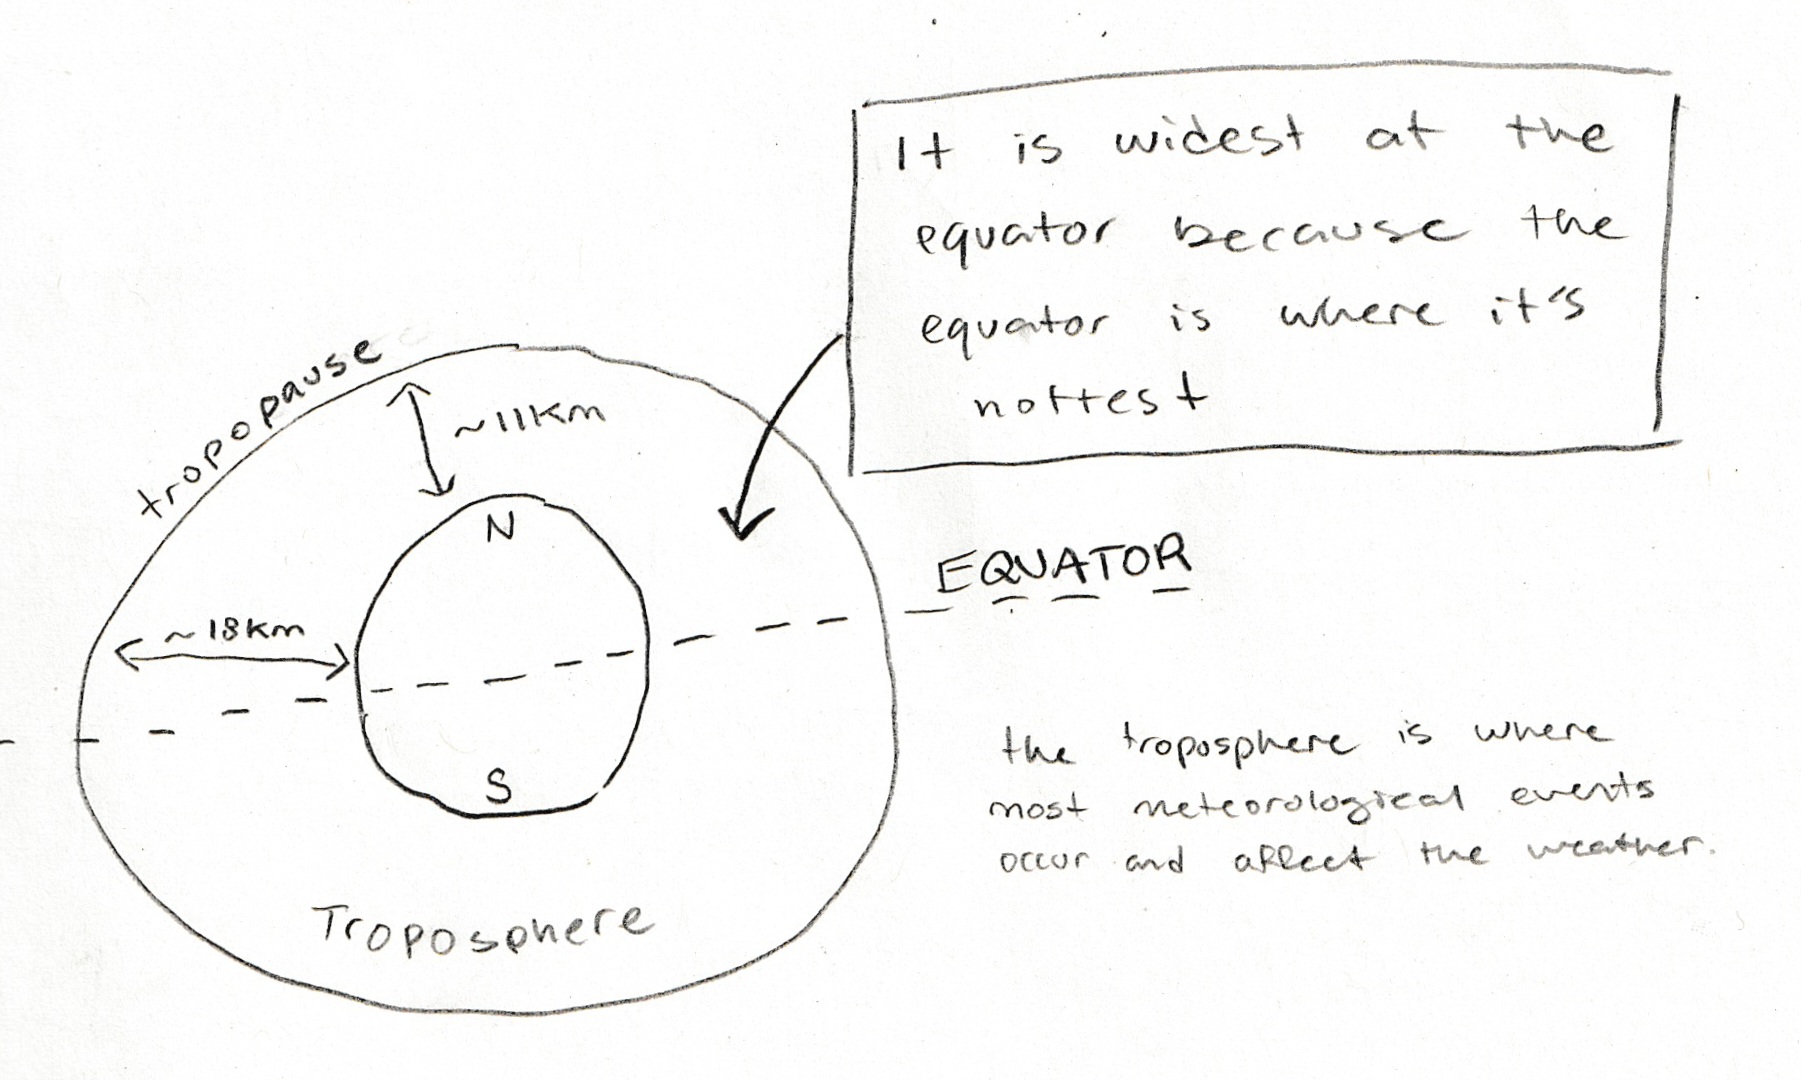 It is widest at the
equator because the
equator is where it's
hottest
tropopause
~11km
N
EQUATOR
~18km
the troposphere is where
most meteorological events
occur and affect the weather.
S
Troposphere